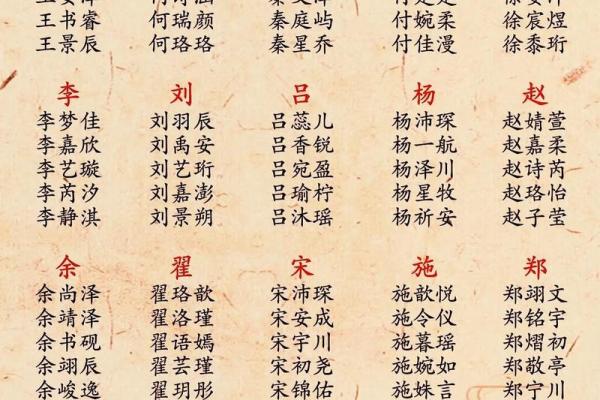 王书睿 何瑞颜 秦庭屿 付婉柔 徐宸煜
王景辰 何珞珞 秦星乔 付佳漫 徐黍珩
李 刘 吕 杨 赵
李梦佳 刘羽辰 吕蕊儿 杨沛琛 赵婧萱
李嘉欣 刘禹安 吕香锐 杨一航 赵嘉柔
李艺璇 刘艺珩 吕宛盈 杨泽川 赵诗芮
李芮汐 刘嘉澎 吕瑜柠 杨星牧 赵珞怡
李静淇 刘景朔 吕沐瑶 杨祈安 赵子莹
余 翟 宋 施 郑
余尚泽 翟珞歆 宋沛琛 施歆悦 郑翊文
余靖泽 翟洛瑾 宋安成 施令仪 郑铭宇
余书砚 翟语嫣 宋宇川 施暮瑶 郑熠初
余翊辰 翟芸瑾 宋初尧 施婉如 郑敬亭
余峻逸 翟玥彤 宋锦佑 施姝言 郑宁川